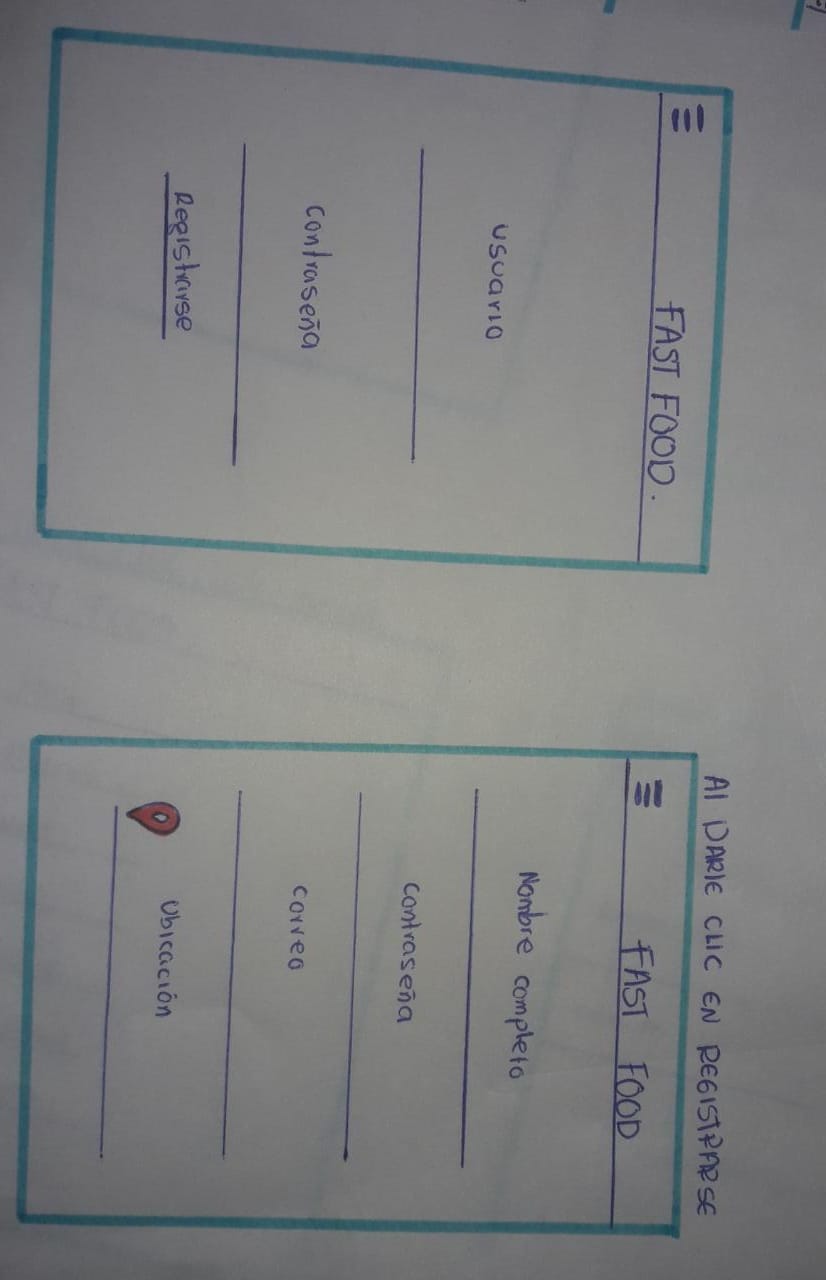 FAST FOOD.
usuario
Contraseña
Registrarse
Al DARle CLIC EN REGISTRARSE
FAST FOOD
Nombre completo
Contraseña
correo
Ubicación